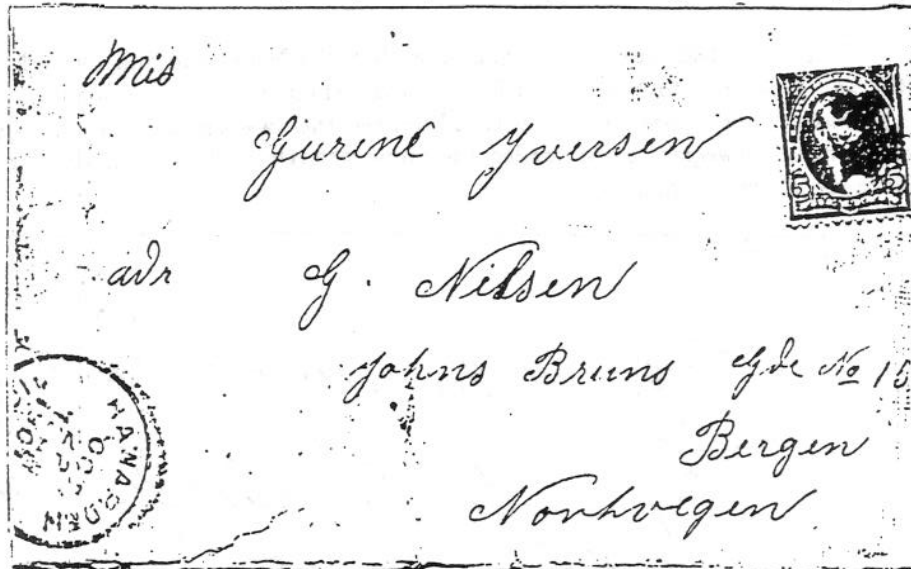 Mis
Gurine Yversen
adr G. Nilsen
Johns Bruns Gde No 15
Bergen
Norhvegen
5 5